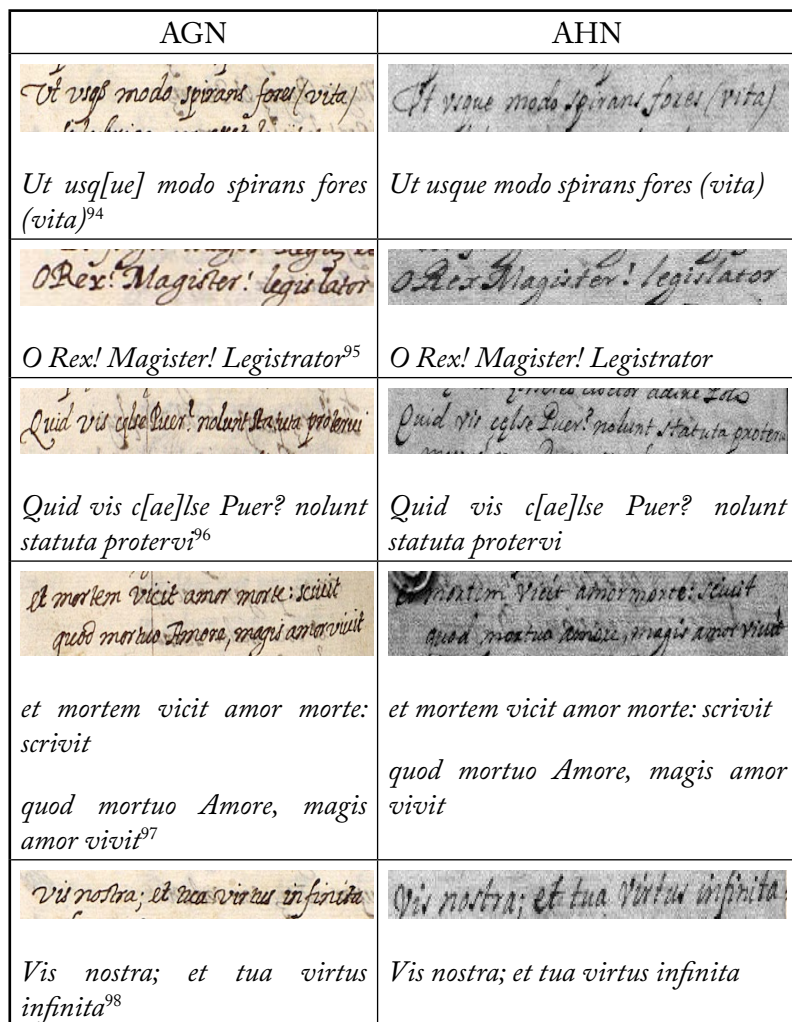 AGN
AHN
Ut vsqꝫ modo spirans fores (vita)
Ut usq[ue] modo spirans fores
(vita)94
Ut vsque modo spirans fores (vita)
Ut usque modo spirans fores (vita)
O Rex! Magister! legislator
O Rex! Magister! Legistrator95
O Rex Magister! legislator
O Rex! Magister! Legistrator
Quid vis cęlse Puer? nolunt statuta protervi
Quid vis c[ae]lse Puer? nolunt
statuta protervi96
doctor
Quid vis cęlse Puer? nolunt statuta proterv
Quid vis c[ae]lse Puer? nolunt
statuta protervi
et mortem vicit amor morte: sciuit
quod mortuo Amore, magis amor viuit
et mortem vicit amor morte:
scrivit
quod mortuo Amore, magis
amor vivit97
et mortem vicit amor morte: sciuit
quod mortuo Amore, magis amor viuit
et mortem vicit amor morte: scrivit
quod mortuo Amore, magis amor
vivit
Vis nostra; et tua virtus infinita
Vis nostra; et tua virtus
infinita98
Vis nostra; et tua virtus infinita
Vis nostra; et tua virtus infinita